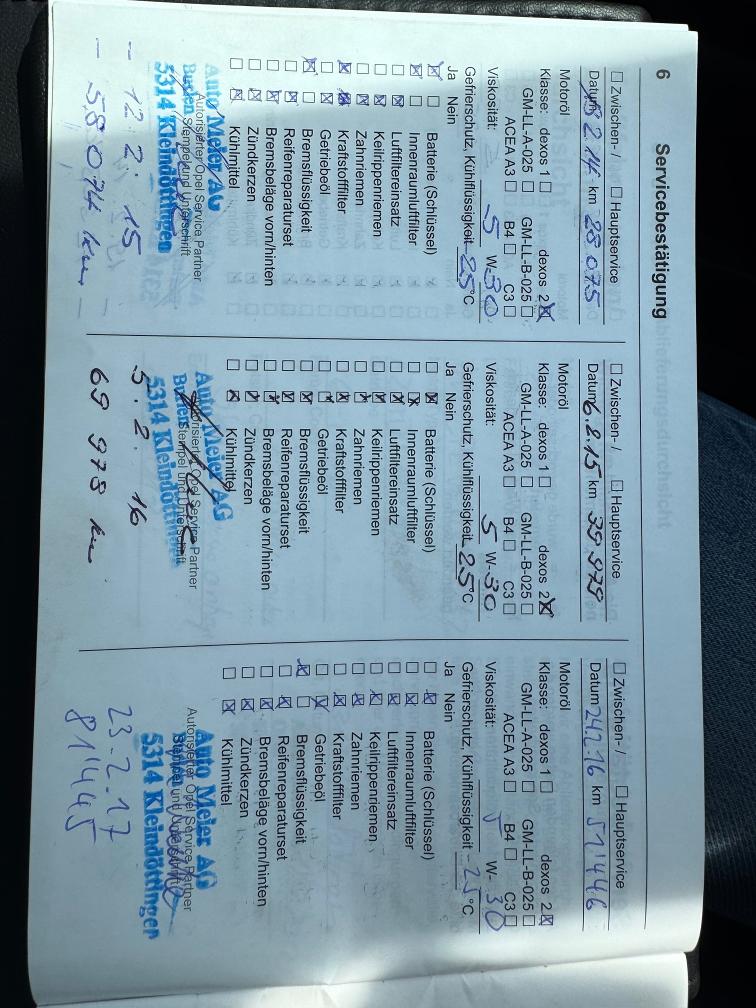 6 Servicebestätigung
☐ Zwischen- / ☐ Hauptservice
Datum 2 14 km 28 075
Motoröl
Klasse: dexos 1 ☐ dexos 2 ☒
GM-LL-A-025 ☐ GM-LL-B-025 ☐
ACEA A3 ☐ B4 ☐ C3 ☐
Viskosität: 5 W-30
Gefrierschutz, Kühlflüssigkeit -25 °C
Ja Nein
☒ ☐ Batterie (Schlüssel)
☒ ☐ Innenraumluftfilter
☐ ☒ Luftfiltereinsatz
☐ ☒ Keilrippenriemen
☐ ☒ Zahnriemen
☒ ☒ Kraftstofffilter
☐ ☒ Getriebeöl
☒ ☐ Bremsflüssigkeit
☐ ☒ Reifenreparaturset
☐ ☒ Bremsbeläge vorn/hinten
☐ ☒ Zündkerzen
☐ ☒ Kühlmittel
Auto Meier AG
Autorisierter Opel Service Partner
Stempel und Unterschrift
5314 Kleindöttingen
-- 12 2. 15
– 58 074 km –
☐ Zwischen- / ☐ Hauptservice
Datum 6.2.15 km 39 979
Motoröl
Klasse: dexos 1 ☐ dexos 2 ☒
GM-LL-A-025 ☐ GM-LL-B-025 ☐
ACEA A3 ☐ B4 ☐ C3 ☐
Viskosität: 5 W-30
Gefrierschutz, Kühlflüssigkeit -25 °C
Ja Nein
☐ ☒ Batterie (Schlüssel)
☐ ☒ Innenraumluftfilter
☐ ☒ Luftfiltereinsatz
☐ ☒ Keilrippenriemen
☐ ☒ Zahnriemen
☐ ☒ Kraftstofffilter
☐ ☒ Getriebeöl
☐ ☒ Bremsflüssigkeit
☐ ☒ Reifenreparaturset
☐ ☒ Bremsbeläge vorn/hinten
☐ ☒ Zündkerzen
☐ ☒ Kühlmittel
Auto Meier AG
Autorisierter Opel Service Partner
Stempel und Unterschrift
5314 Kleindöttingen
5. 2. 16
69 979 km
☐ Zwischen- / ☐ Hauptservice
Datum 24.2.16 km 51'446
Motoröl
Klasse: dexos 1 ☐ dexos 2 ☒
GM-LL-A-025 ☐ GM-LL-B-025 ☐
ACEA A3 ☐ B4 ☐ C3 ☐
Viskosität: 5 W-30
Gefrierschutz, Kühlflüssigkeit -25 °C
Ja Nein
☐ ☒ Batterie (Schlüssel)
☐ ☒ Innenraumluftfilter
☐ ☒ Luftfiltereinsatz
☐ ☒ Keilrippenriemen
☐ ☒ Zahnriemen
☐ ☒ Kraftstofffilter
☐ ☒ Getriebeöl
☒ ☐ Bremsflüssigkeit
☐ ☒ Reifenreparaturset
☐ ☒ Bremsbeläge vorn/hinten
☐ ☒ Zündkerzen
☐ ☒ Kühlmittel
Auto Meier AG
Autorisierter Opel Service Partner
Stempel und Unterschrift
5314 Kleindöttingen
23.2.17
81'445